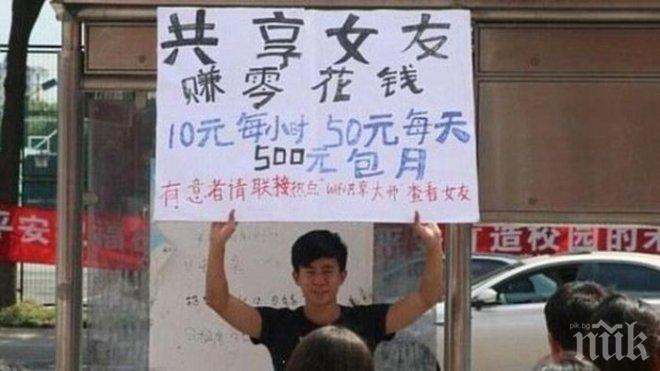 共享女友
赚零花钱
10元每小时 50元每天
500元包月
有意者请联接热点 WiFi共享大师 查看女友
平安
造校园的
pik.bg
пик